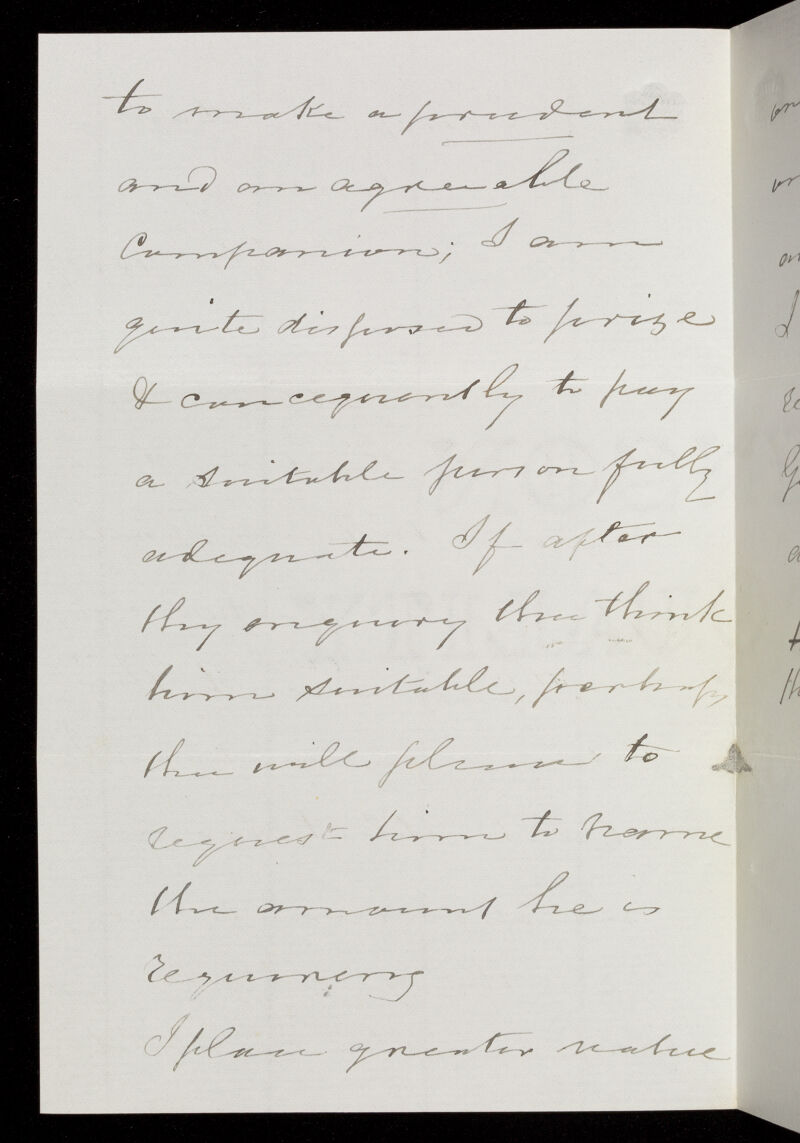 to make a prudent
and an agreeable
Companion; I am
quite disposed to prize
& concequently to pay
a suitable person fully
adequate. If after
thy enquiry thee think
him suitable, perhaps
thee will please to
request him to name
the amount he is
requireing
I place greater value